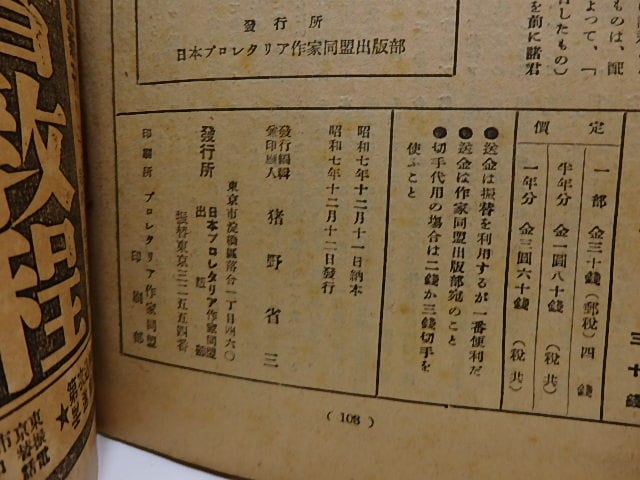 ものは、配
よつて、「
したもの)
を前に諸君
發行所
日本プロレタリア作家同盟出版部
三十錢
定價
一部 金三十錢(郵税)四錢
半年分 金一圓八十錢 (税共)
一年分 金三圓六十錢 (税共)
●送金は振替を利用するが一番便利だ
●送金は作家同盟出版部宛のこと
●切手代用の場合は二錢か三錢切手を
使ふこと
昭和七年十二月十一日納本
昭和七年十二月十二日發行
發行編輯
兼印刷人 猪野省三
東京市淀橋區落合一丁目四六〇
發行所 日本プロレタリア作家同盟
出版部
振替東京三二五五四番
印刷所 プロレタリア作家同盟
印刷部
(103)
教程
東京市
振替
電話